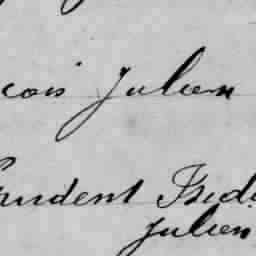 cois Julien
Prudent Isid
Julien